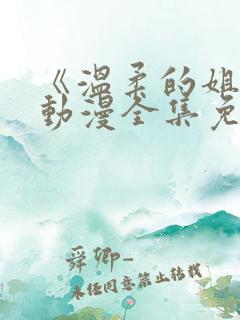 《温柔的姐
動漫全集免
舜卿-
未经同意禁止转载